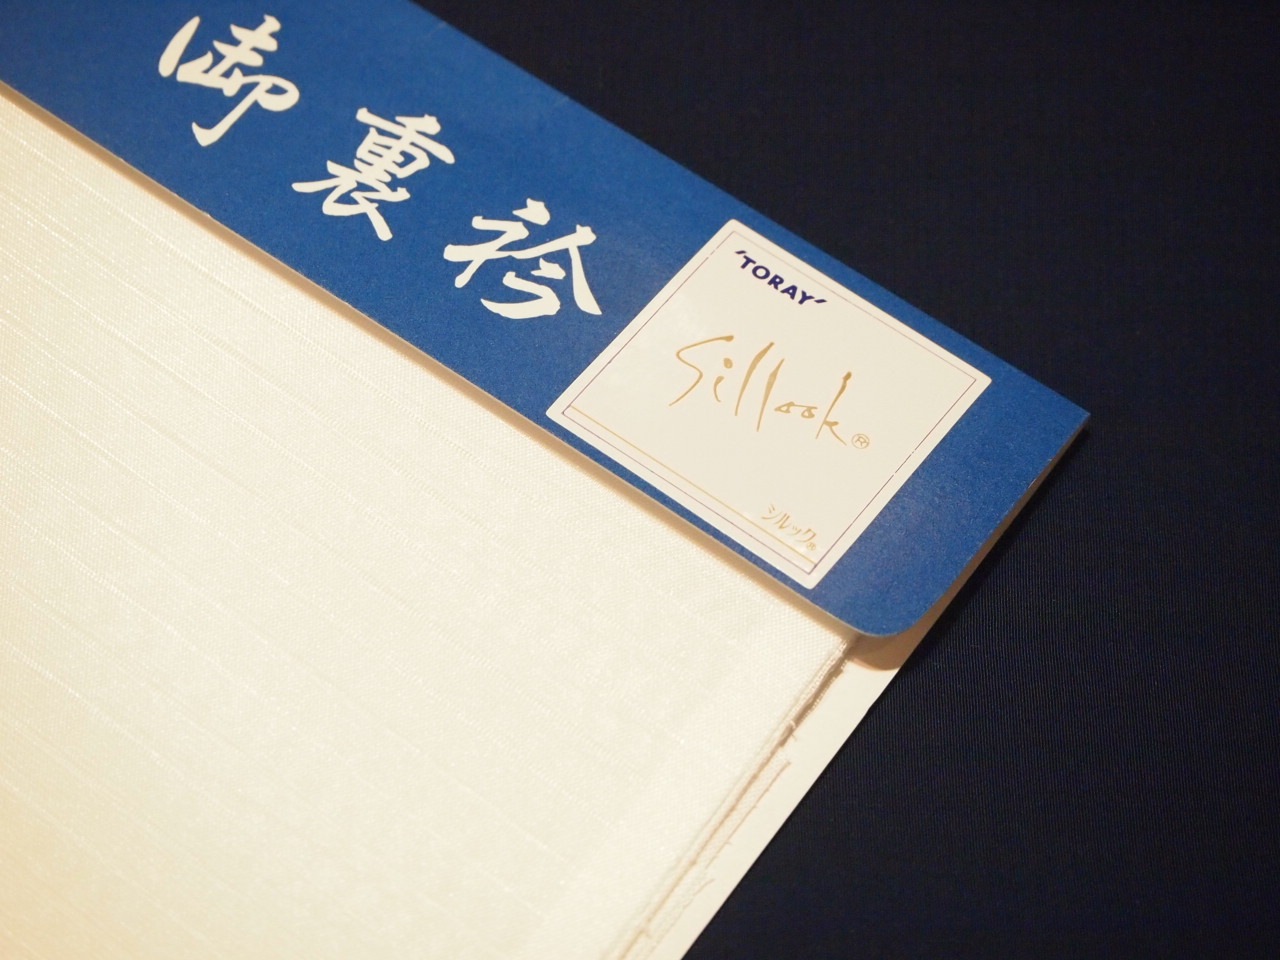 御裏衿
'TORAY'
Sillook®
シルック®